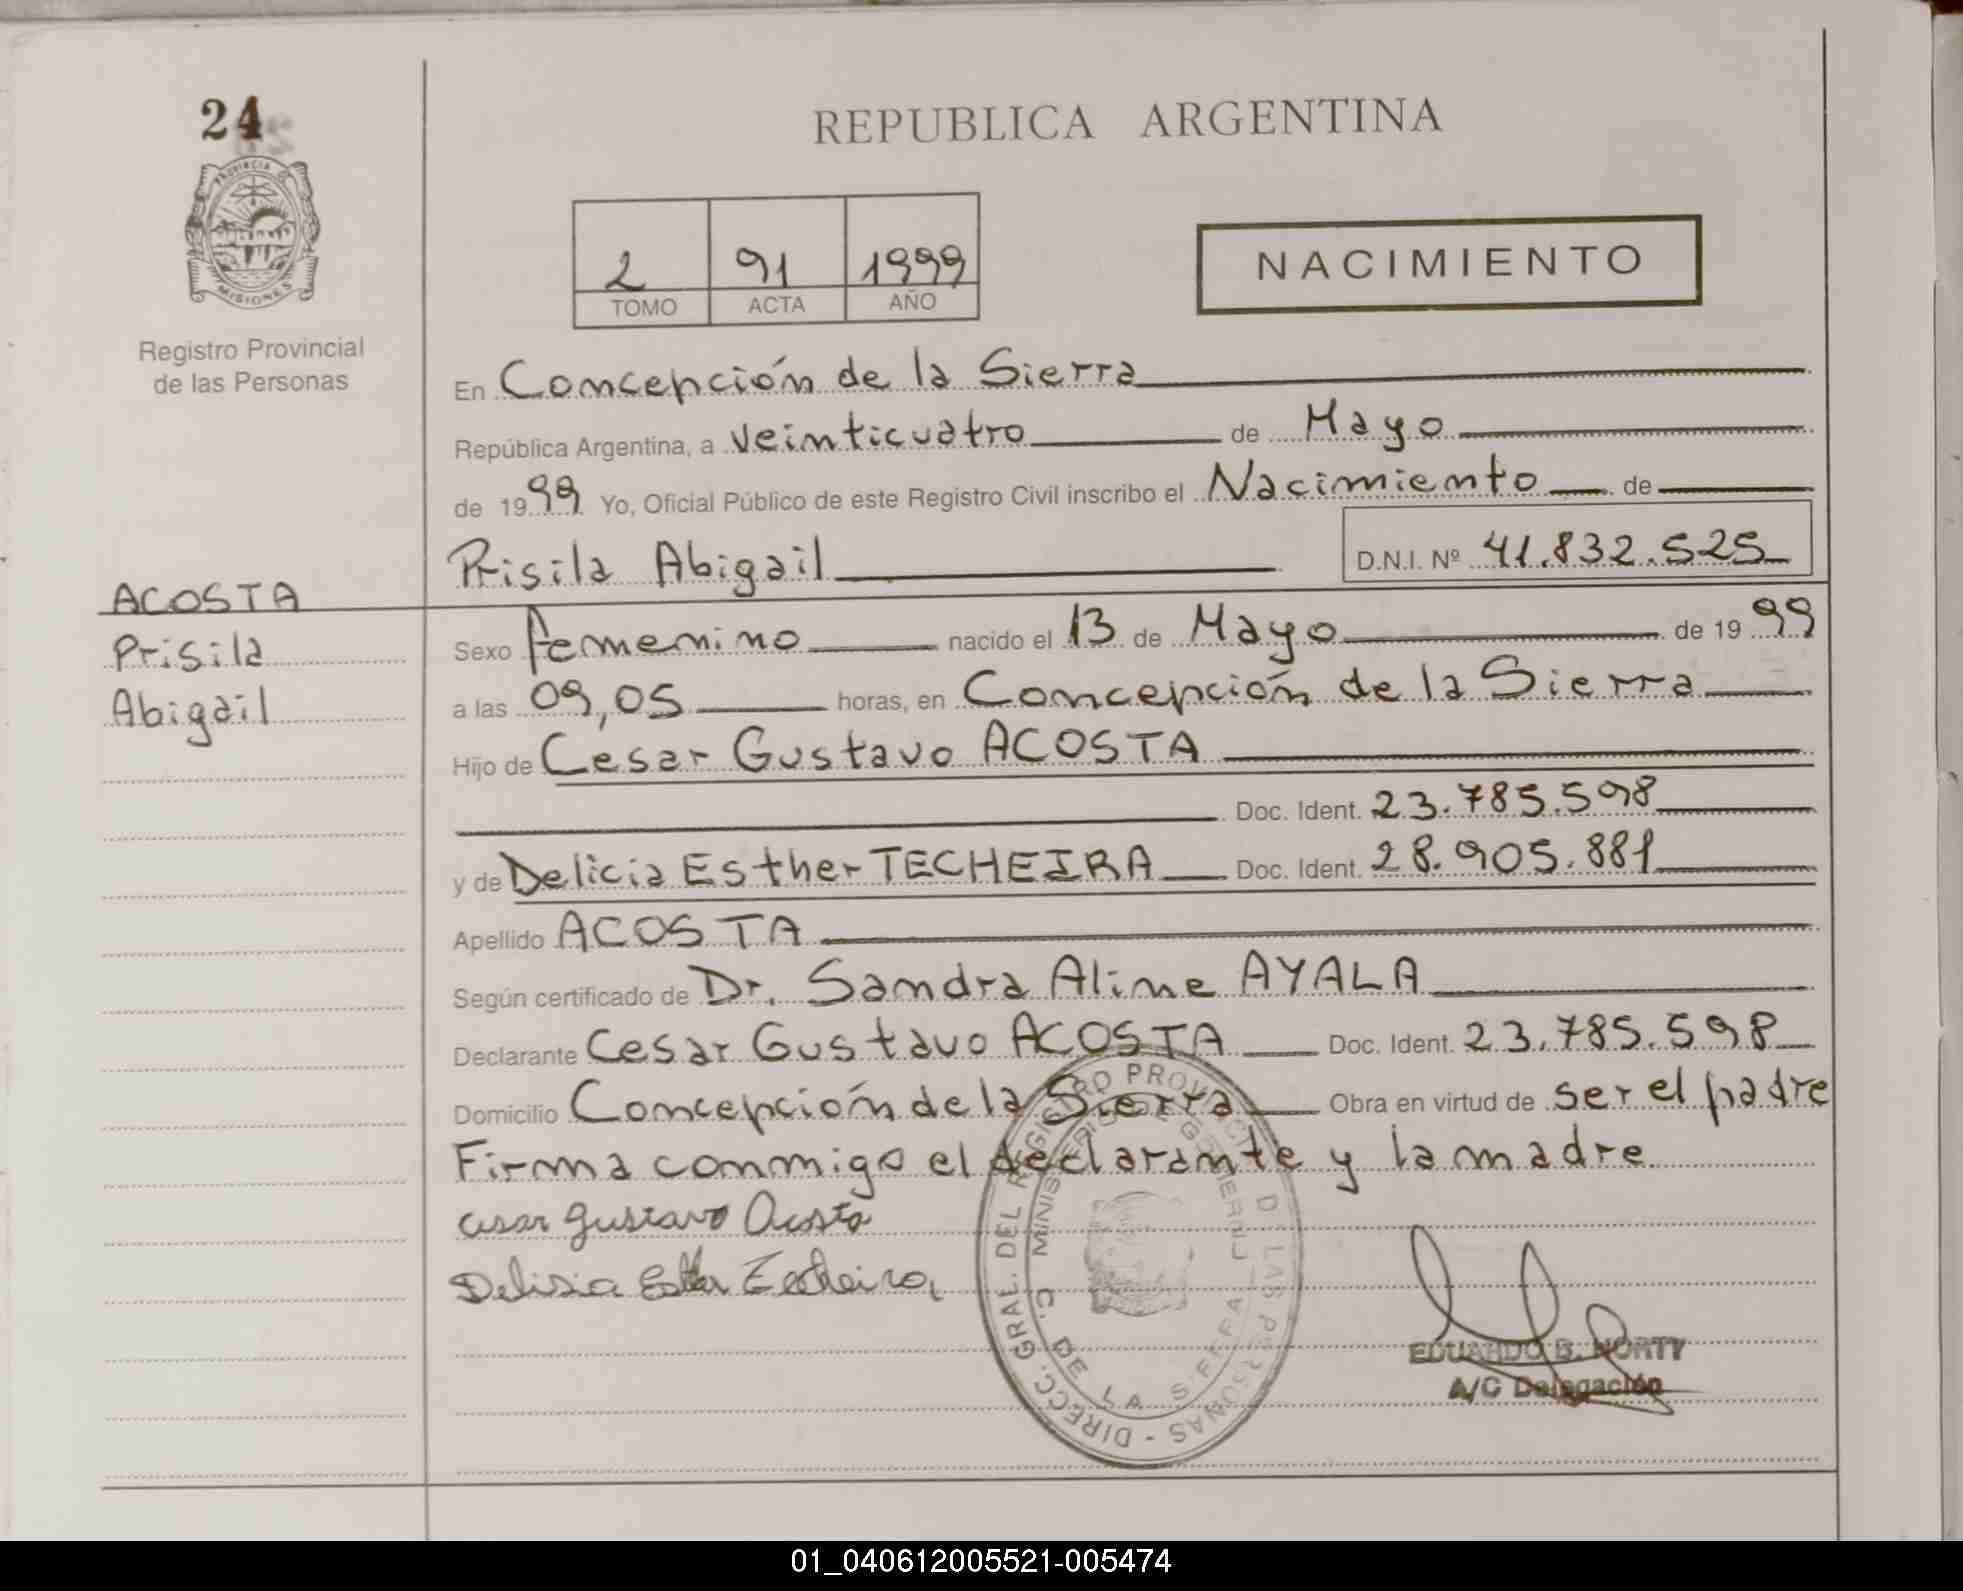 24
PROVINCIA DE
MISIONES
Registro Provincial
de las Personas
ACOSTA
Prisila
Abigail
REPUBLICA ARGENTINA
2 91 1999
TOMO ACTA AÑO
NACIMIENTO
En Concepción de la Sierra
República Argentina, a veinticuatro de Mayo
de 1999 Yo, Oficial Público de este Registro Civil inscribo el Nacimiento de
Prisila Abigail D.N.I. Nº 41.832.525
Sexo femenino nacido el 13 de Mayo de 1999
a las 09,05 horas, en Concepción de la Sierra
Hijo de Cesar Gustavo ACOSTA
Doc. Ident. 23.785.598
y de Delicia Esther TECHEIRA Doc. Ident. 28.905.881
Apellido ACOSTA
Según certificado de Dr. Sandra Aline AYALA
Declarante Cesar Gustavo ACOSTA Doc. Ident. 23.785.598
Domicilio Concepción de la Sierra Obra en virtud de ser el padre
Firma conmigo el declarante y la madre
Cesar Gustavo Acosta
Delisia Ester Techeira
DIRECC. GRAL. DEL REGISTRO PROVINCIAL DE LAS PERSONAS -
MINISTERIO DE GOBIERNO
C. DE LA SIERRA
EDUARDO B. NORTY
A/C Delegación
01_040612005521-005474